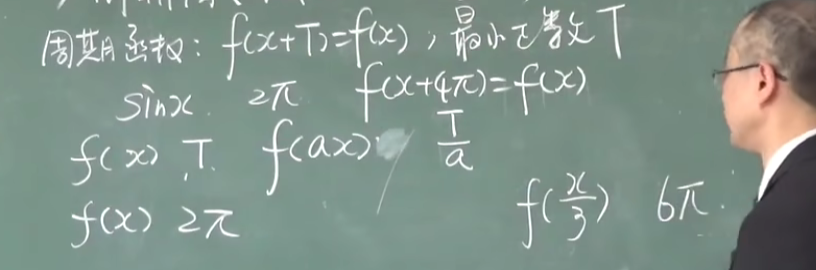 周期函数: f(x+T)=f(x), 最小正数 T
sinx. 2π f(x+4π)=f(x)
f(x) T. f(ax) T/a
f(x) 2π f(x/3) 6π.